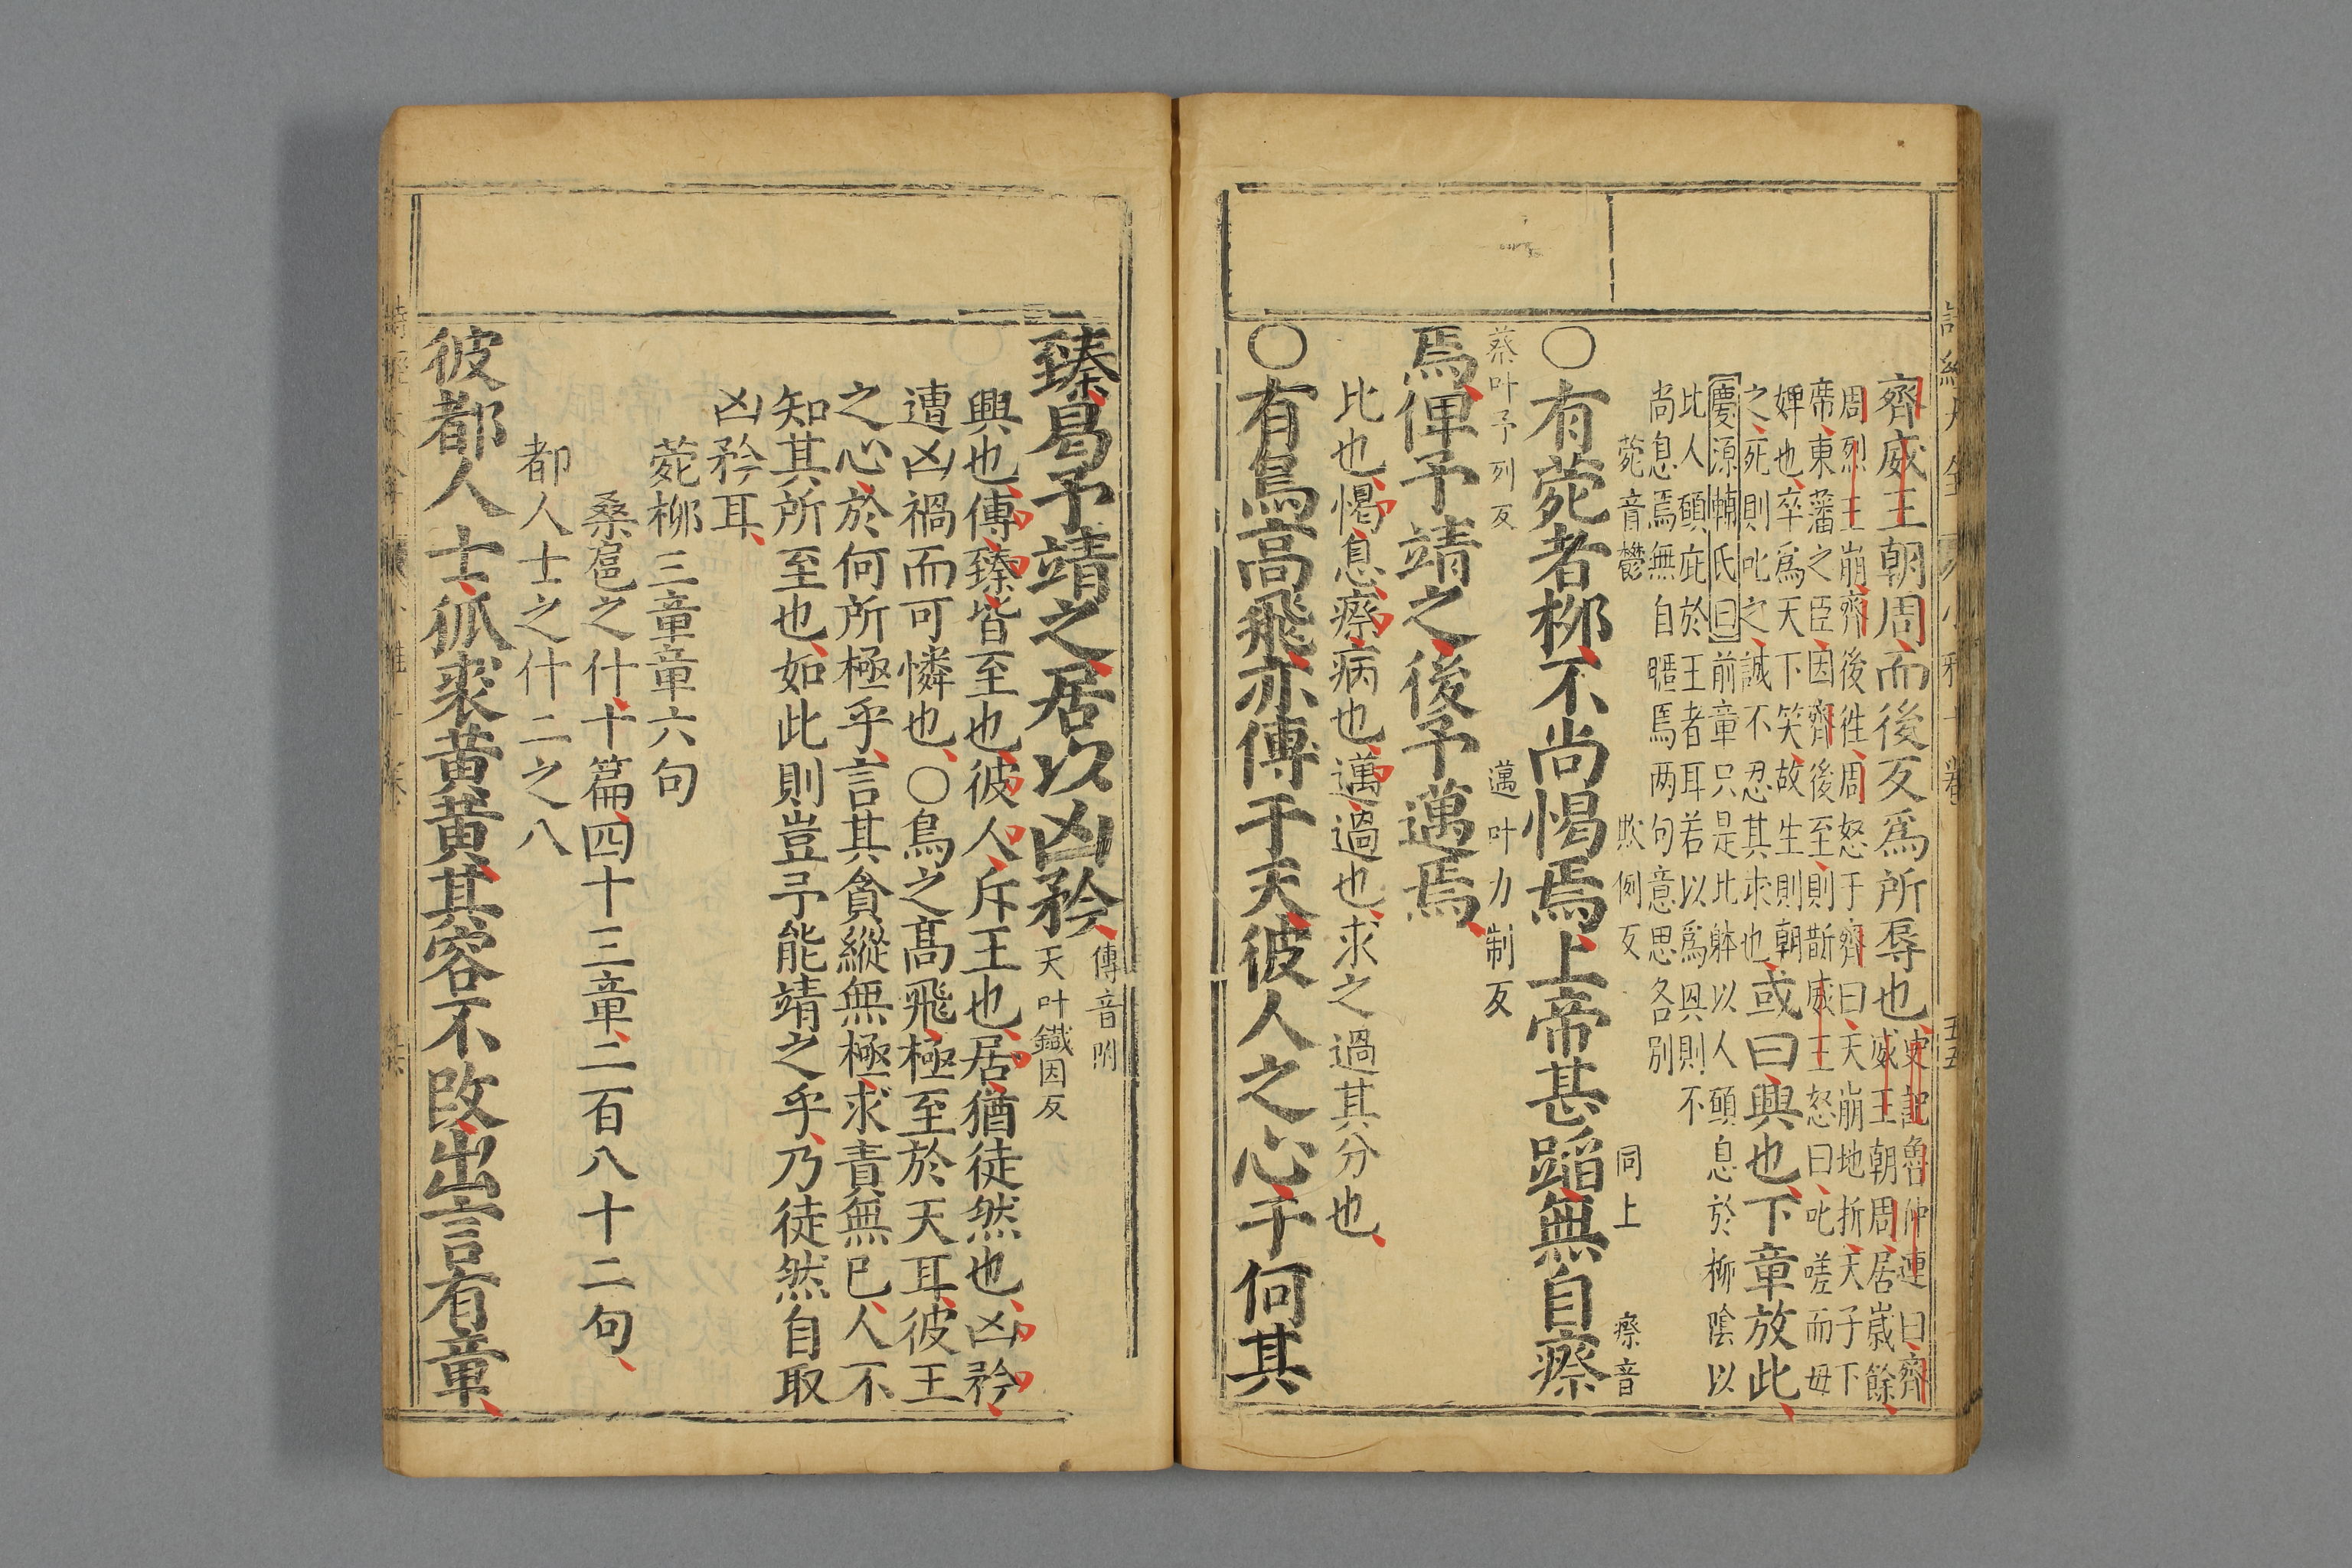 齊威王朝周而後反爲所辱也史記魯仲連曰齊
威王朝周居歲餘
周烈王崩齊後徃周怒于齊曰天崩地折天子下
帝東藩之臣因齊後至則斮威王怒曰叱嗟而母
婢也卒爲天下笑故生則朝
之死則叱之誠不忍其求也或曰興也下章放此
慶源輔氏曰前章只是比躰以人願息於柳陰以
比人願庇於王者耳若以爲興則不
尚息焉無自暱焉两句意思各別
菀音鬱 欺例反 同上 瘵音
○有菀者柳不尚愒焉上帝甚蹈無自瘵
蔡叶子列反 邁叶力制反
焉俾予靖之後予邁焉
比也愒息瘵病也邁過也求之過其分也
○有鳥高飛亦傅于天彼人之心于何其
臻曷予靖之居以凶矜傅音附
天叶鐵因反
興也傅臻皆至也彼人斥王也居猶徒然也凶矜
遭凶禍而可憐也○鳥之高飛極至於天耳彼王
之心於何所極乎言其貪縱無極求責無已人不
知其所至也如此則豈予能靖之乎乃徒然自取
凶矜耳
菀柳三章章六句
桑扈之什十篇四十三章二百八十二句
都人士之什二之八
彼都人士狐裘黃黃其容不改出言有章